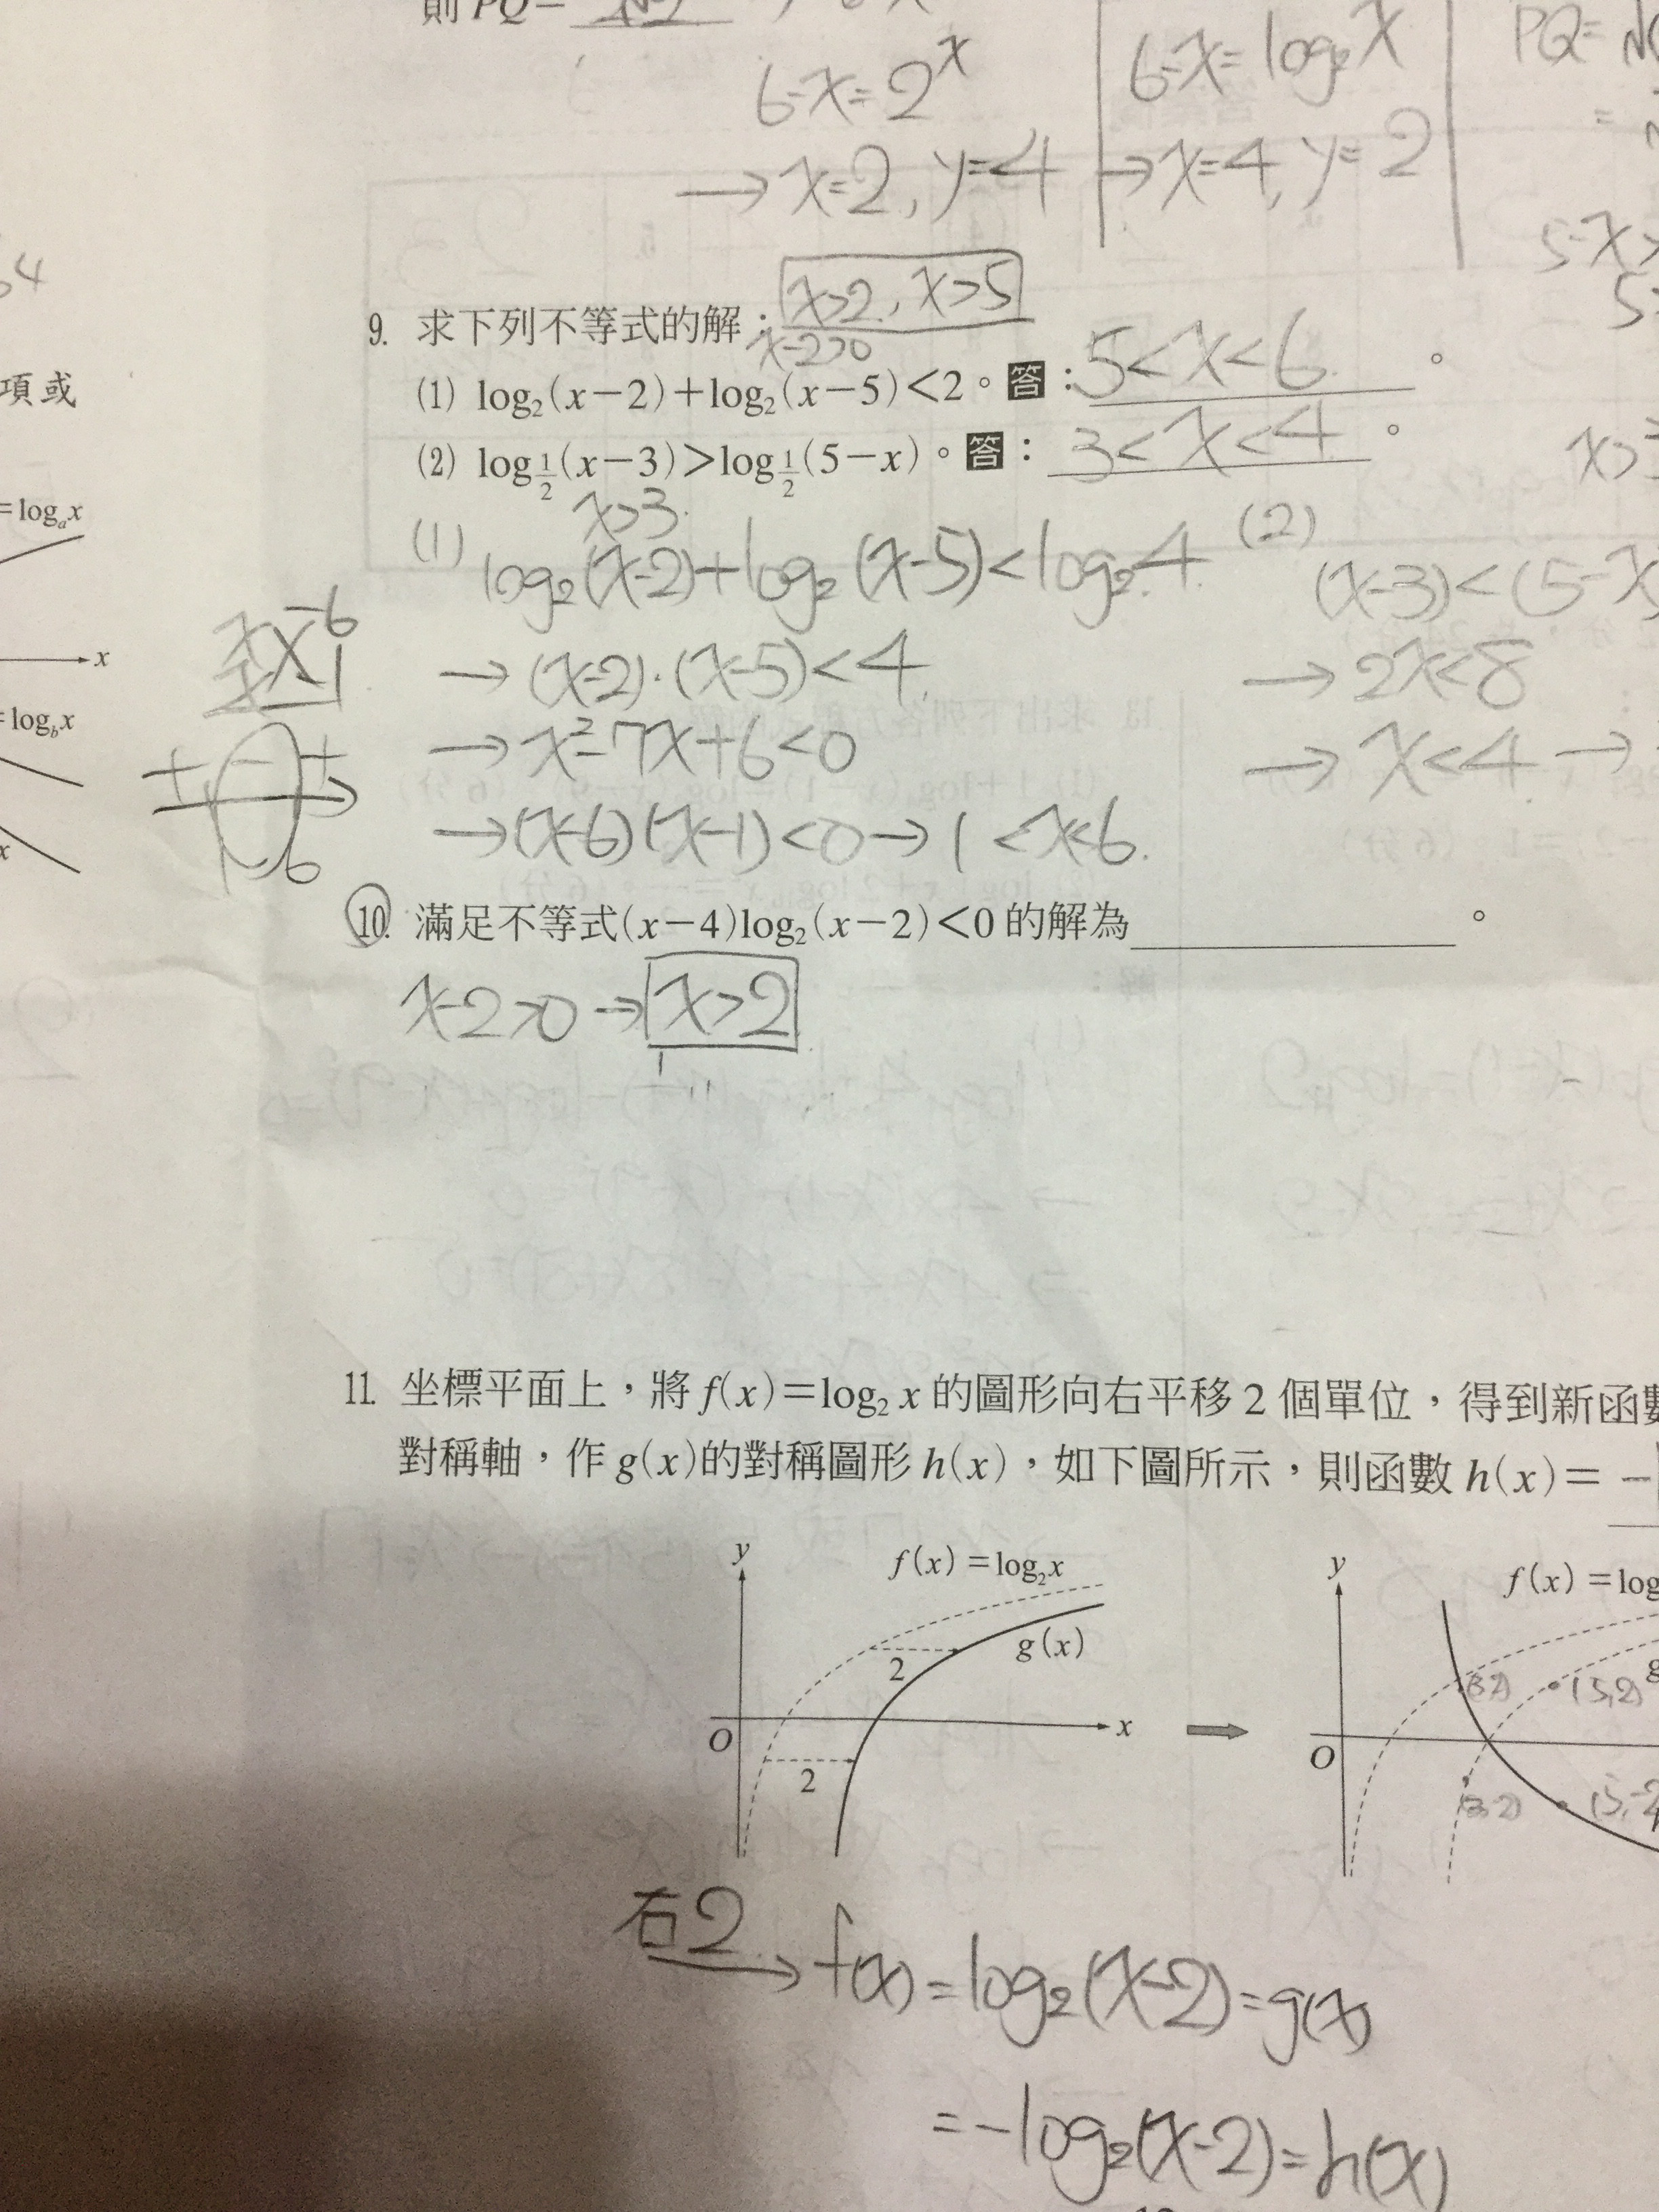 則 PQ=
6-x=2^x
6-x=log₂x
PQ=
→x=2, y=4
→x=4, y=2
5-x>
4
x>2, x>5
9. 求下列不等式的解：
x-2>0
(1) log₂(x－2)＋log₂(x－5)＜2。答：5<x<6。
(2) log_{1/2}(x－3)＞log_{1/2}(5－x)。答：3<x<4。
項或
=logₐx
x>3
(1) log₂(x-2)+log₂(x-5)<log₂4
→(x-2)·(x-5)<4
→x²-7x+6<0
→(x-6)(x-1)<0→1<x<6.
(2)
(x-3)<(5-x
→2x<8
→x<4→
x -6
x -1
+ - +
1 6
x
=log_b x
x
10. 滿足不等式(x－4)log₂(x－2)＜0 的解為　。
x-2>0→x>2
11. 坐標平面上，將 f(x)＝log₂ x 的圖形向右平移 2 個單位，得到新函數
對稱軸，作 g(x)的對稱圖形 h(x)，如下圖所示，則函數 h(x)＝ -
y
f(x)＝log₂x
g(x)
2
O
x
2
y
f(x)＝log
g
(3,2)
(5,2)
O
(5,-2
右2→f(x)=log₂(x-2)=g(x)
=-log₂(x-2)=h(x)